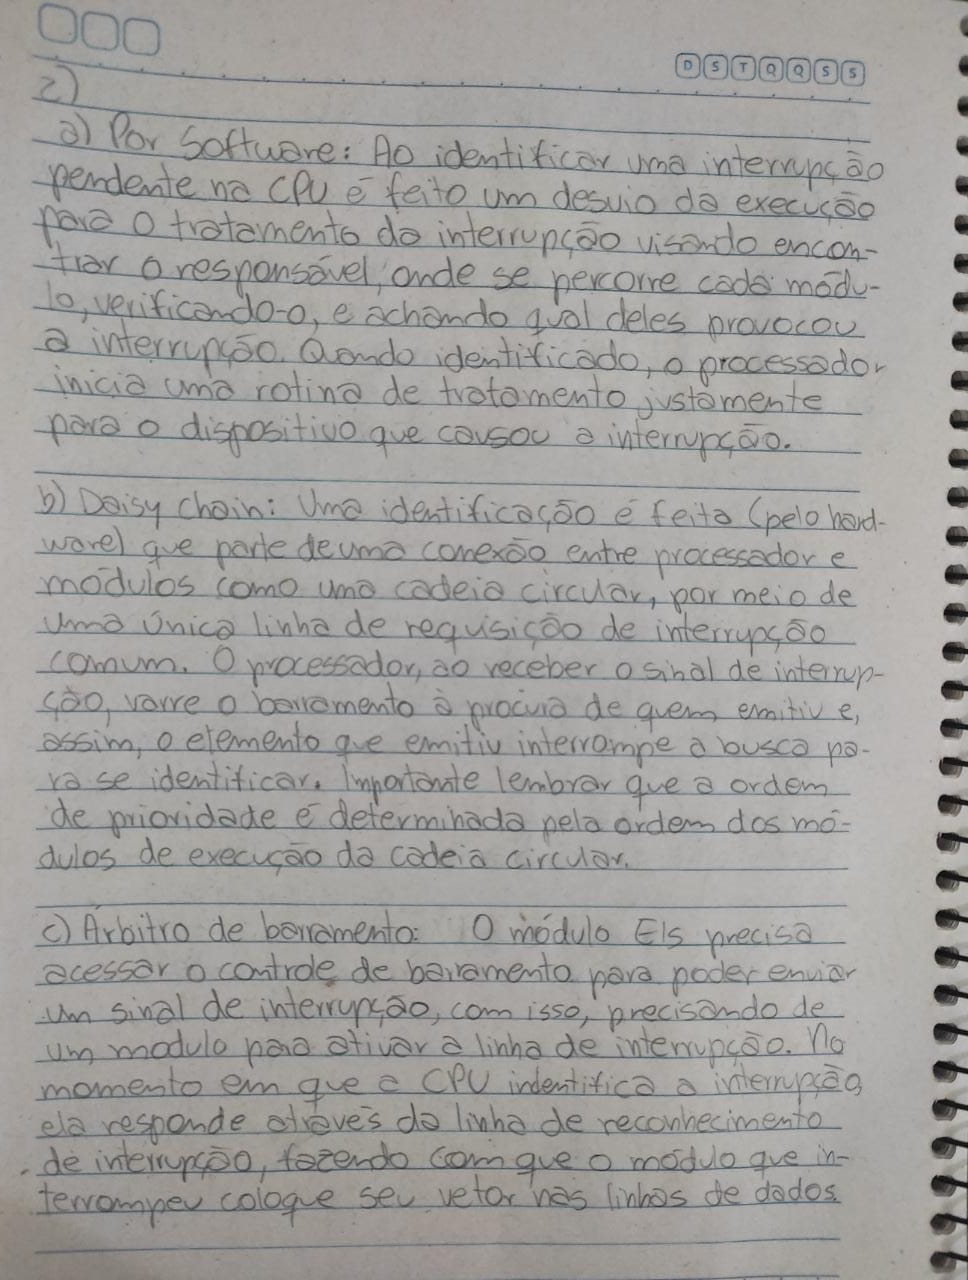 D S T Q Q S S
2)
a) Por Software: Ao identificar uma interrupção
pendente na CPU é feito um desvio da execução
para o tratamento da interrupção visando encon-
trar o responsável, onde se percorre cada módu-
lo, verificando-o, e achando qual deles provocou
a interrupção. Quando identificado, o processador
inicia uma rotina de tratamento justamente
para o dispositivo que causou a interrupção.
b) Daisy Chain: Uma identificação é feita (pelo hard-
ware) que parte de uma conexão entre processador e
módulos como uma cadeia circular, por meio de
uma única linha de requisição de interrupção
comum. O processador, ao receber o sinal de interrup-
ção, varre o barramento à procura de quem emitiu e,
assim, o elemento que emitiu interrompe a busca pa-
ra se identificar. Importante lembrar que a ordem
de prioridade é determinada pela ordem dos mó-
dulos de execução da cadeia circular.
c) Árbitro de barramento: O módulo E/s precisa
acessar o controle de barramento para poder enviar
um sinal de interrupção, com isso, precisando de
um modulo para ativar a linha de interrupção. No
momento em que a CPU indentifica a interrupção,
ela responde através da linha de reconhecimento
de interrupção, fazendo com que o módulo que in-
terrompeu coloque seu vetor nas linhas de dados